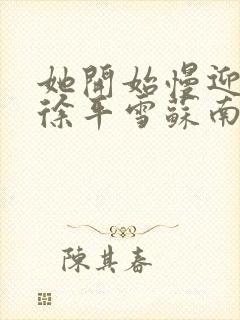 她開始慢迎
徐平雪蘇南
陳其春